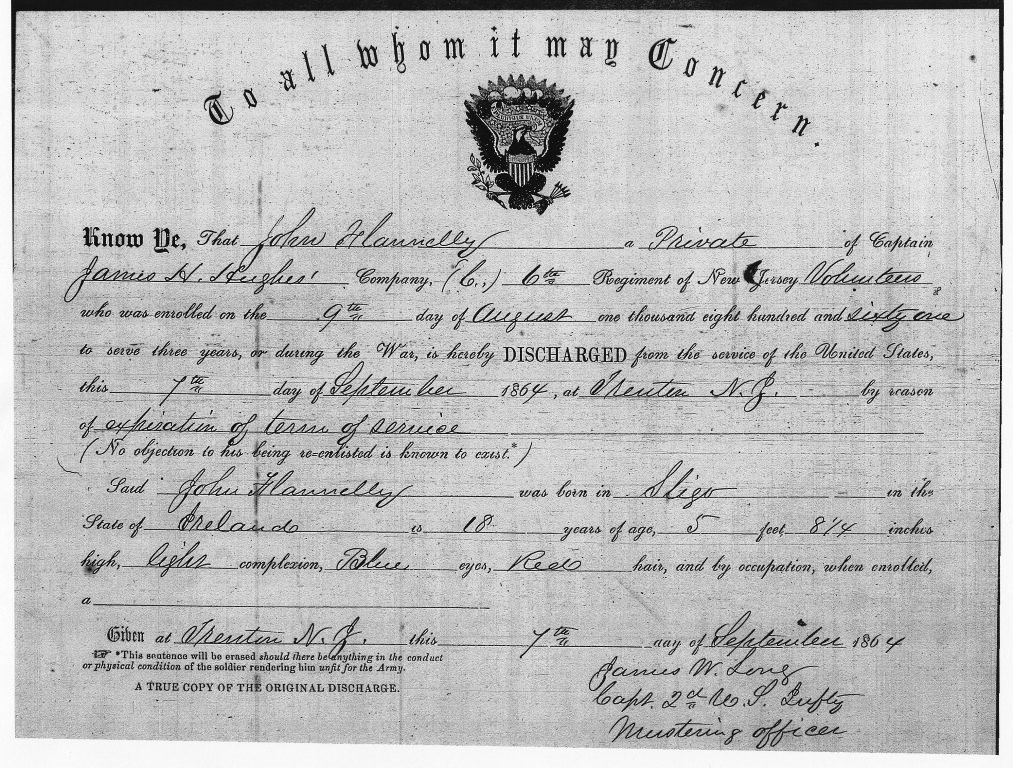 To all whom it may Concern.
Know Ye, That John Flannelly a Private of Captain
James H. Hughes' Company, (C.,) 6th Regiment of New Jersey Volunteers
who was enrolled on the 9th day of August one thousand eight hundred and sixty one
to serve three years, or during the War, is hereby DISCHARGED from the service of the United States,
this 7th day of September 1864, at Trenton N. J. by reason
of expiration of term of service
(No objection to his being re-enlisted is known to exist.*)
Said John Flannelly was born in Sligo in the
State of Ireland is 18 years of age, 5 feet 8 1/4 inches
high, light complexion, Blue eyes, Red hair, and by occupation, when enrolled,
a
Given at Trenton N. J. this 7th day of September 1864
☞ *This sentence will be erased should there be anything in the conduct
or physical condition of the soldier rendering him unfit for the Army.
A TRUE COPY OF THE ORIGINAL DISCHARGE.
James W. Long
Capt. 2d U. S. Infty
Mustering officer